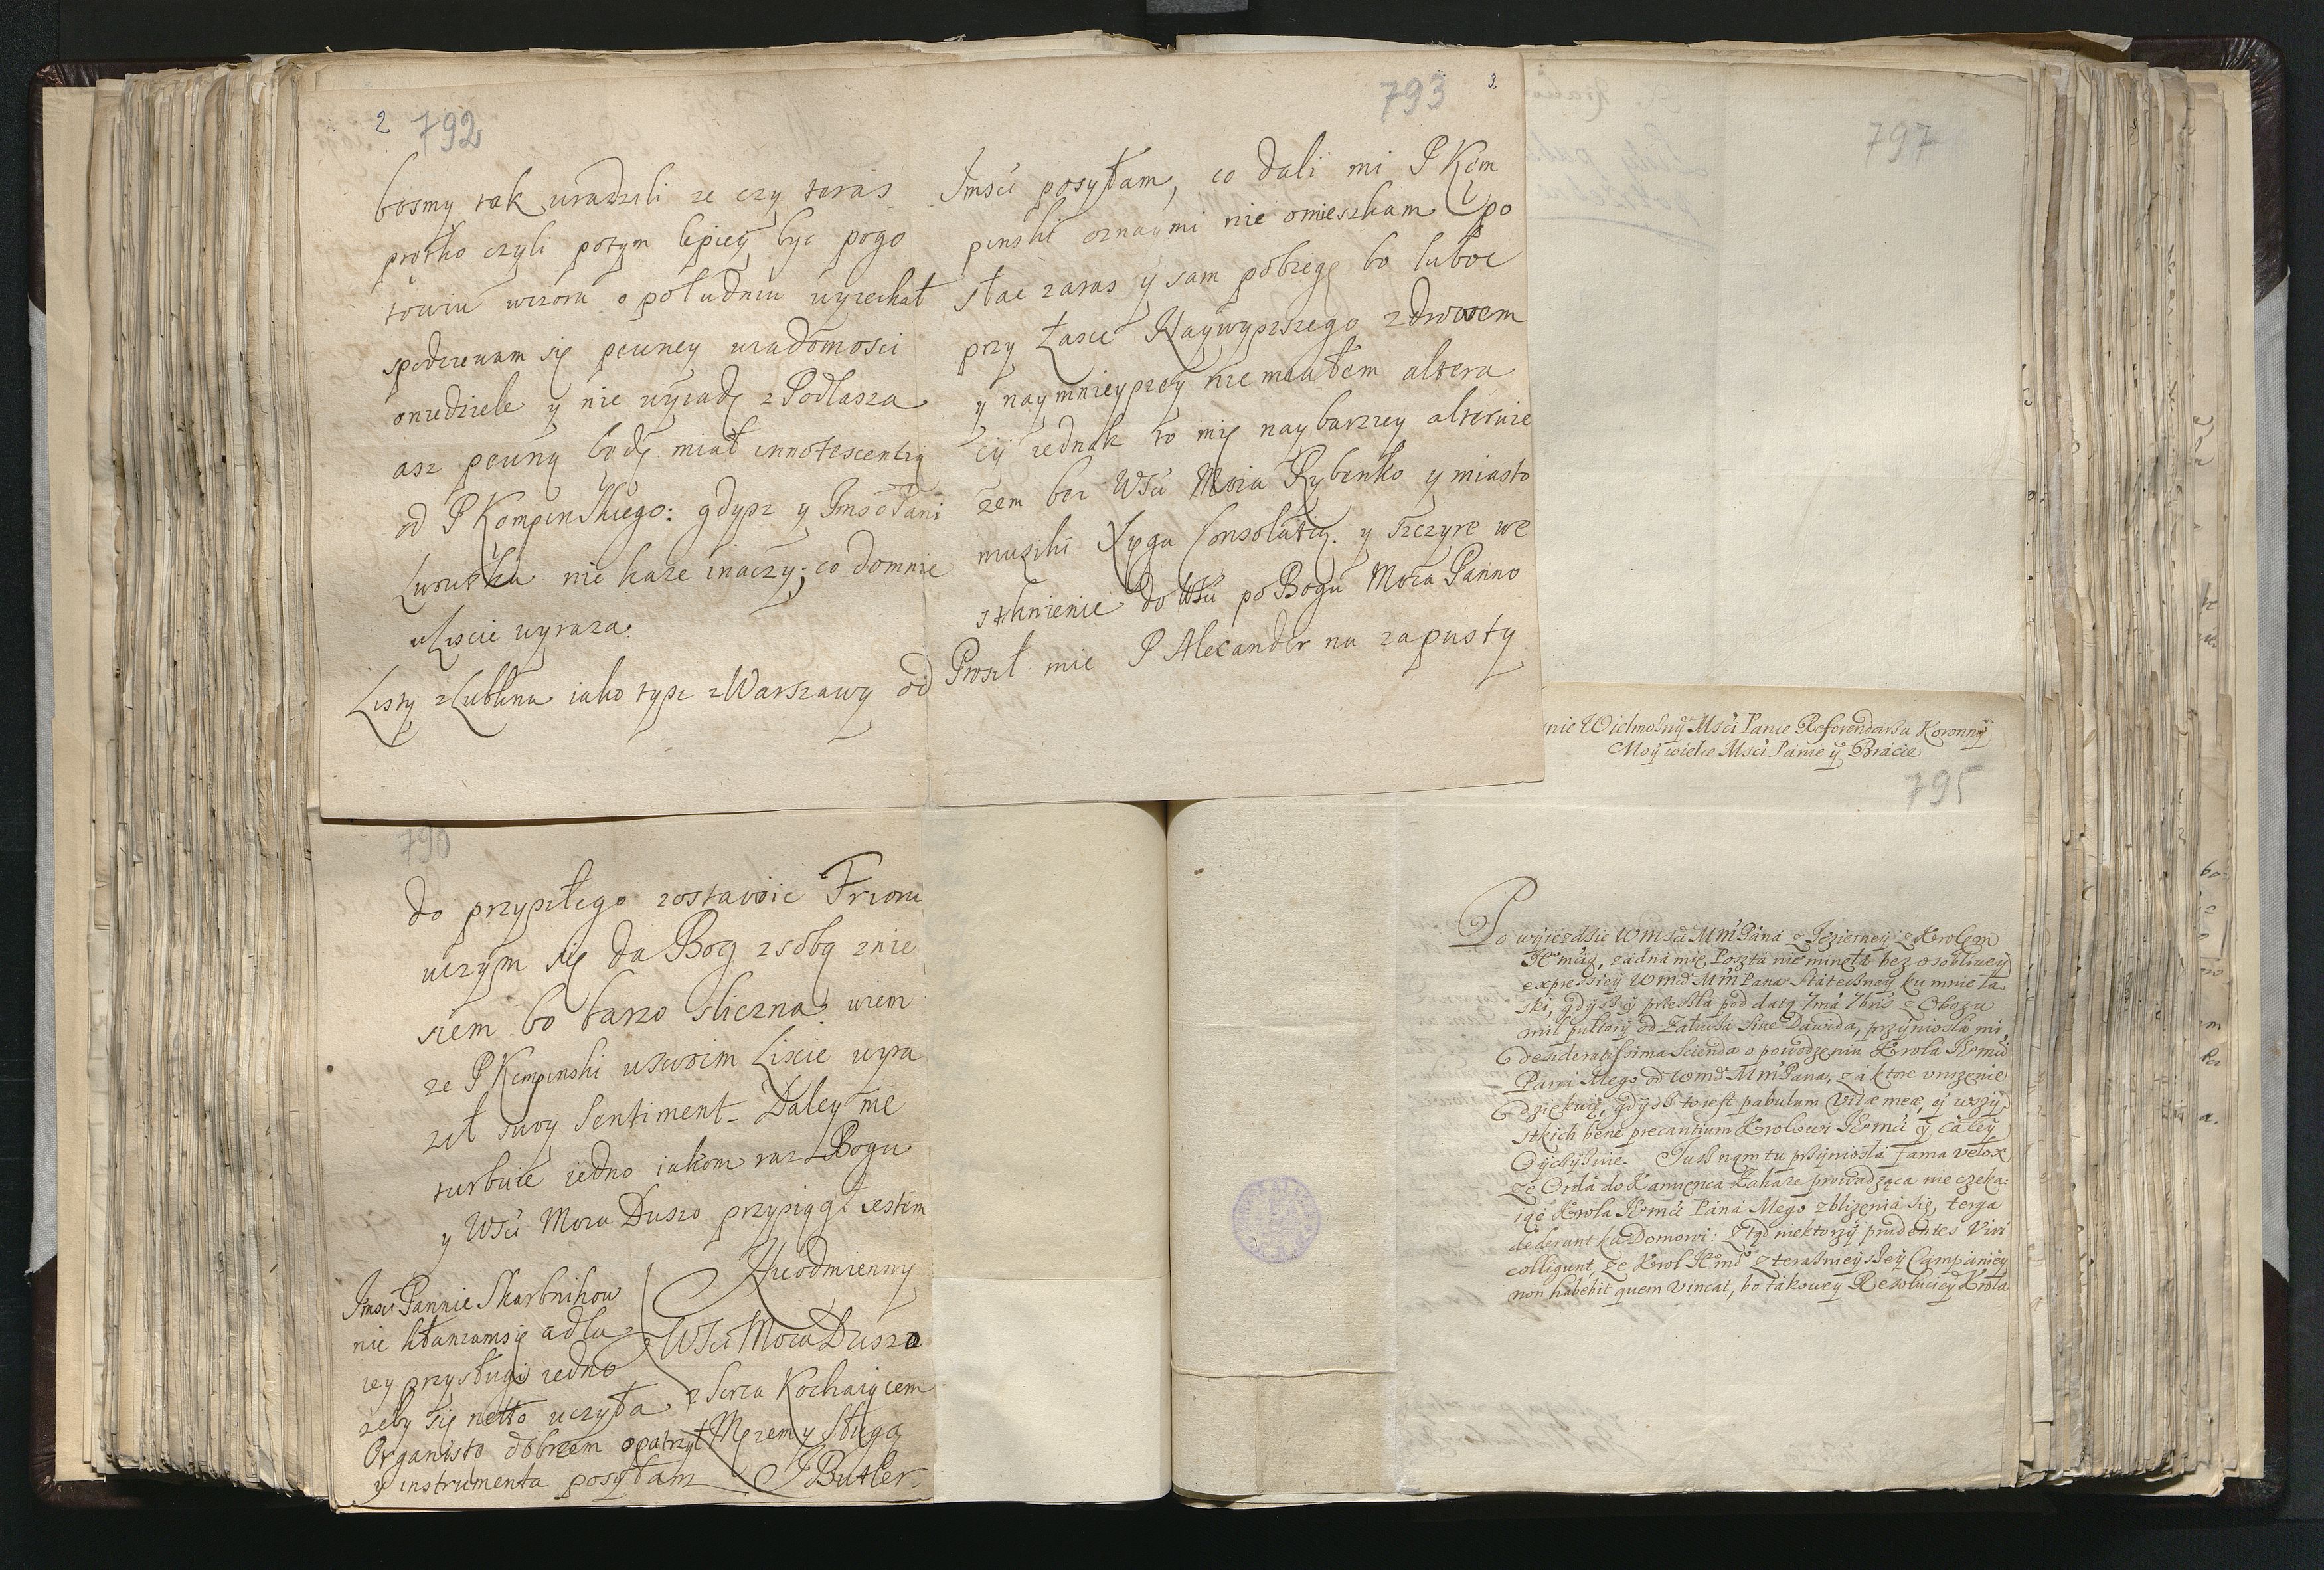 2 792
bosmy tak uradzili ze czy teras
prętko czyli potym lepiey byc pogo
towiu wczora o południu wyiechał
spodziewam się pewney wiadomosci
oniedziele y nie wyiadę z Podlasza
asz pewną będę miał innotescentią
od P Kompinskiego: gdysz y Jmsc Pani
nie kaze inaczy; co domnie
wliscie wyraza.
Listy z Lublina iako tysz z Warszawy od
793 3.
Jmsci posyłam, co dali mi P Kem
pinski oznaymi nie omieszkam po
słac zaras y sam pobiegę bo luboc
przy Łasce Naywyszszego zdrowem
y naymnieyszey nie miałem altera
cyi iednak to mię naybarziey alteruie
zem bez WSci Moia Rybenko y miasto
muziki consolatią. y szczyre we
stchnienie do WSci po Bogu Moia Panno
Prosił mie P Alexander na zapusty
790
do przyszłego zostawie
uczym się da Bog z sobą znie
siem bo barzo sliczna. wiem
ze P Kempinski wswoim Liscie wyra
ził swoy Sentiment_ Daley nie
turbuie iedno iakom raz Bogu
y WSci Moia Duszo przysiągł iestem
Nieodmienny
WSci Moia Duszo
z Serca Kochaiącem
Męzem y Sługą
J Butler
Jmsci Pannie Skarbnikow
nie kłaniamsię adla
iey przysługi iedno
zeby się netto uczyła
Organisto dobrzem opatrzył
y instrumenta posyłam
797
Wielmozny Msci Panie Referendarzu Koronny
Moy wielce Msci Panie y Bracie
795
Po wyiezdzie WmSci MmPana z Jezierney z Krolem
JKmcią, zadna mię Poszta nie mineła bez osobliwey
expressiey Wmsci MmPana Statecszney ku mnie ła-
ski, gdysz y przeszła pod datą 7ma 7bris z Obozu
mil pułtory od Załusia siue Dawida, przyniosła mi,
desideratissima scienda o powodzeniu Krola JKmci
Pana Mego od Wmsci MmPana, za ktore unizenie
dziękuię, gdysz to iest pabulum vitæ meæ, ey wszy-
stkich bene precantium Krolowi JKmci y całey
Oyczyznie. Jusz nam tu przyniosła Fama velox
ze Orda do Kamięnca Zaharę prowadząca nie czeka-
iąc Krola JKmci Pana Mego zblizenia się, terga
dederunt ku Domowi: ztąd niektorzy prudentes Viri
colligunt, ze Krol JKmc z teraznieyszey Campaniey
non habebit quem vincat, bo takowey Rezoluciey Krola